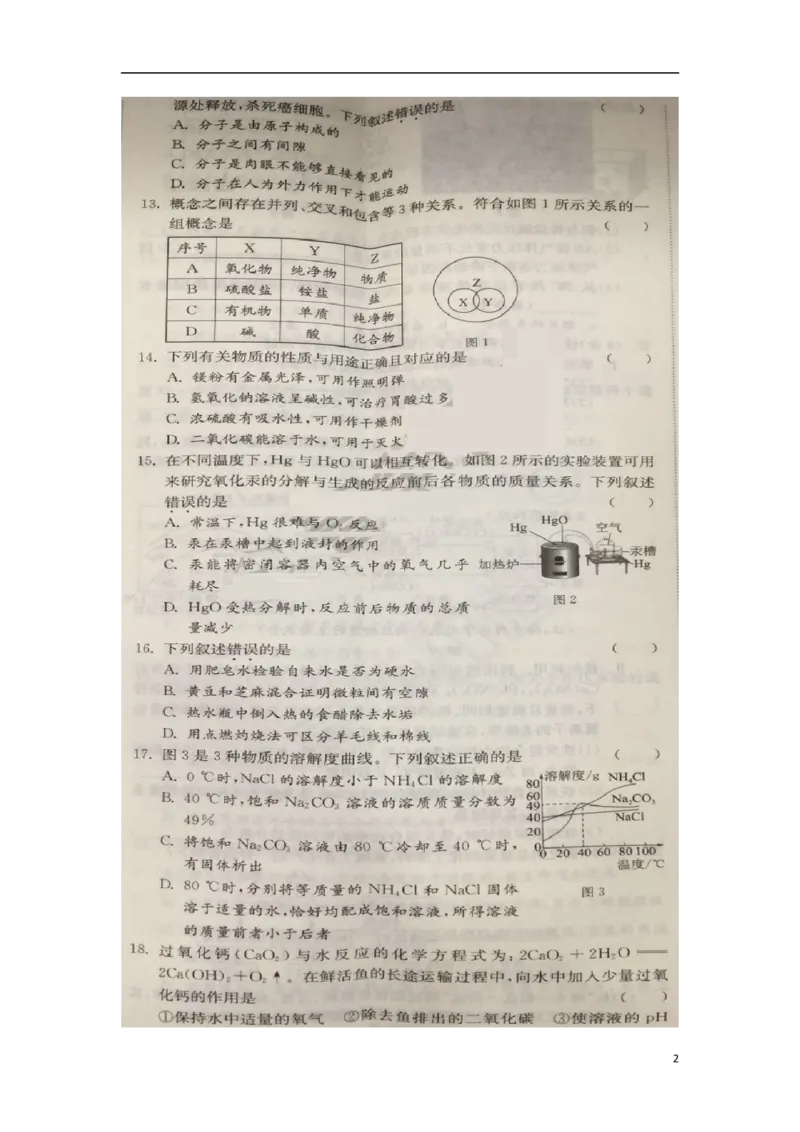 源处释放,杀死癌细胞。下列叙述错误的是 ( )
A. 分子是由原子构成的
B. 分子之间有间隙
C. 分子是肉眼不能够直接看见的
D. 分子在人为外力作用下才能运动
13. 概念之间存在并列、交叉和包含等3种关系。符合如图1所示关系的一
组概念是 ( )
序号 X Y Z
A 氧化物 纯净物 物质
B 硫酸盐 铵盐 盐
C 有机物 单质 纯净物
D 碱 酸 化合物
Z
X Y
图1
14. 下列有关物质的性质与用途正确且对应的是 ( )
A. 镁粉有金属光泽,可用作照明弹
B. 氢氧化钠溶液呈碱性,可治疗胃酸过多
C. 浓硫酸有吸水性,可用作干燥剂
D. 二氧化碳能溶于水,可用于灭火
15. 在不同温度下,Hg与HgO可以相互转化。如图2所示的实验装置可用
来研究氧化汞的分解与生成的反应前后各物质的质量关系。下列叙述
错误的是 ( )
A. 常温下,Hg很难与O₂反应
B. 汞在汞槽中起到液封的作用
C. 汞能将密闭容器内空气中的氧气几乎
耗尽
D. HgO受热分解时,反应前后物质的总质
量减少
Hg HgO 空气
汞槽
加热炉 Hg
图2
16. 下列叙述错误的是 ( )
A. 用肥皂水检验自来水是否为硬水
B. 黄豆和芝麻混合证明微粒间有空隙
C. 热水瓶中倒入热的食醋除去水垢
D. 用点燃灼烧法可区分羊毛线和棉线
17. 图3是3种物质的溶解度曲线。下列叙述正确的是 ( )
A. 0 ℃时,NaCl的溶解度小于NH₄Cl的溶解度
B. 40 ℃时,饱和Na₂CO₃溶液的溶质质量分数为
49%
C. 将饱和Na₂CO₃溶液由80 ℃冷却至40 ℃时,
有固体析出
D. 80 ℃时,分别将等质量的NH₄Cl和NaCl固体
溶于适量的水,恰好均配成饱和溶液,所得溶液
的质量前者小于后者
溶解度/g NH₄Cl
80
60 Na₂CO₃
49
40 NaCl
20
0
0 20 40 60 80 100
温度/℃
图3
18. 过氧化钙(CaO₂)与水反应的化学方程式为:2CaO₂+2H₂O══
2Ca(OH)₂+O₂↑。在鲜活鱼的长途运输过程中,向水中加入少量过氧
化钙的作用是 ( )
①保持水中适量的氧气 ②除去鱼排出的二氧化碳 ③使溶液的pH
2